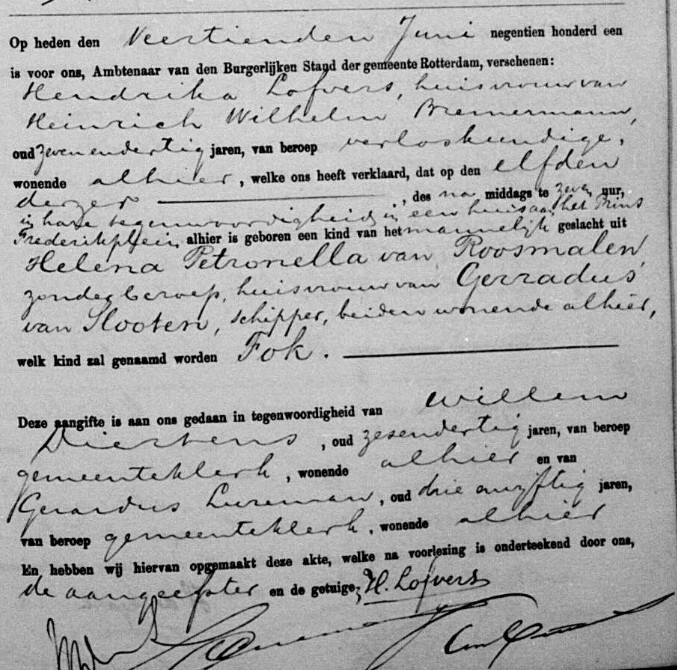 Op heden den Veertienden Juni negentien honderd een
is voor ons, Ambtenaar van den Burgerlijken Stand der gemeente Rotterdam, verschenen:
Hendrika Lofvers, huisvrouw van
Heinrich Wilhelm Bremermann,
oud zevenendertig jaren, van beroep verloskundige,
wonende alhier, welke ons heeft verklaard, dat op den elfden
dezer, des na middags te zeven uur,
in hare tegenwoordigheid, in een huis aan het Prins
Frederikplein alhier is geboren een kind van het mannelijk geslacht uit
Helena Petronella van Roosmalen,
zonder beroep, huisvrouw van Gerradus
van Slooten, schipper, beiden wonende alhier,
welk kind zal genaamd worden Fok.
Deze aangifte is aan ons gedaan in tegenwoordigheid van Willem
, oud zesendertig jaren, van beroep
gemeenteklerk, wonende alhier en van
Gerardus Lureman, oud drie en vijftig jaren,
van beroep gemeenteklerk, wonende alhier
En hebben wij hiervan opgemaakt deze akte, welke na voorlezing is onderteekend door ons,
de aangeefster en de getuige; H. Lofvers